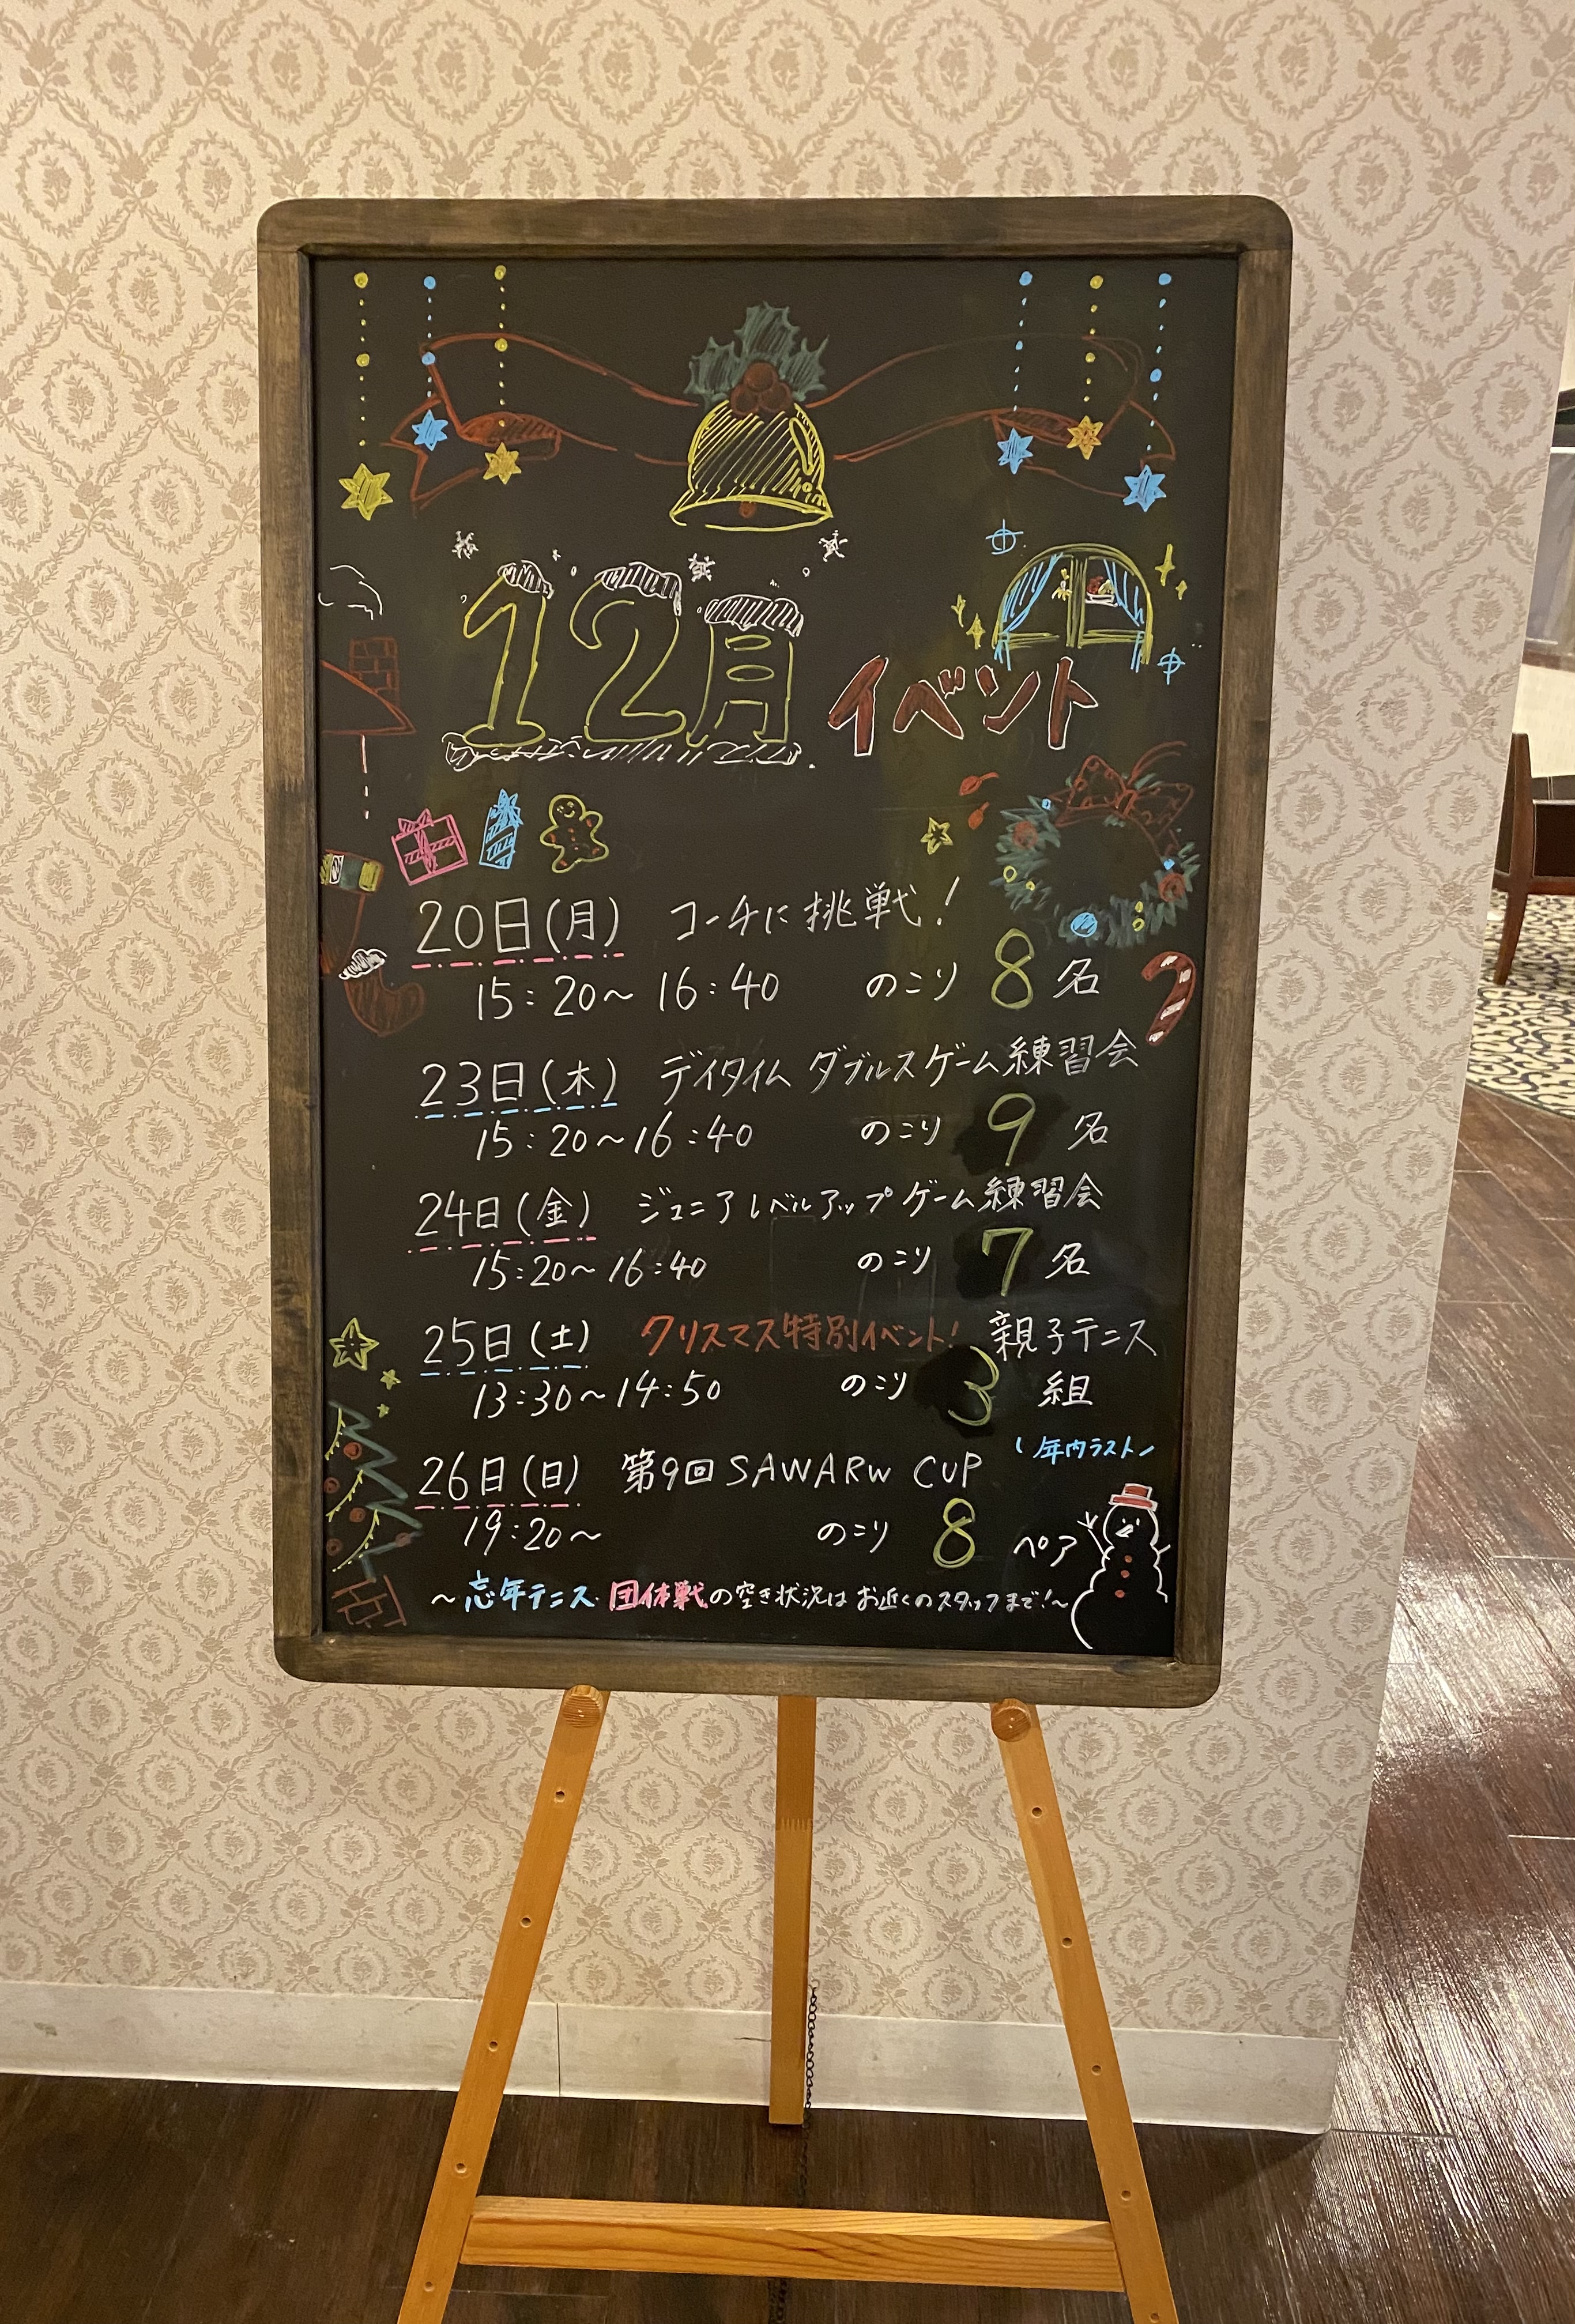 12月 イベント
20日(月) コーチに挑戦!
15:20〜16:40 のこり 8 名
23日(木) デイタイム ダブルスゲーム練習会
15:20〜16:40 のこり 9 名
24日(金) ジュニアレベルアップゲーム練習会
15:20〜16:40 のこり 7 名
25日(土) クリスマス特別イベント! 親子テニス
13:30〜14:50 のこり 3 組
\年内ラスト/
26日(日) 第9回 SAWARW CUP
19:20〜 のこり 8 ペア
〜忘年テニス・団体戦の空き状況はお近くのスタッフまで!〜